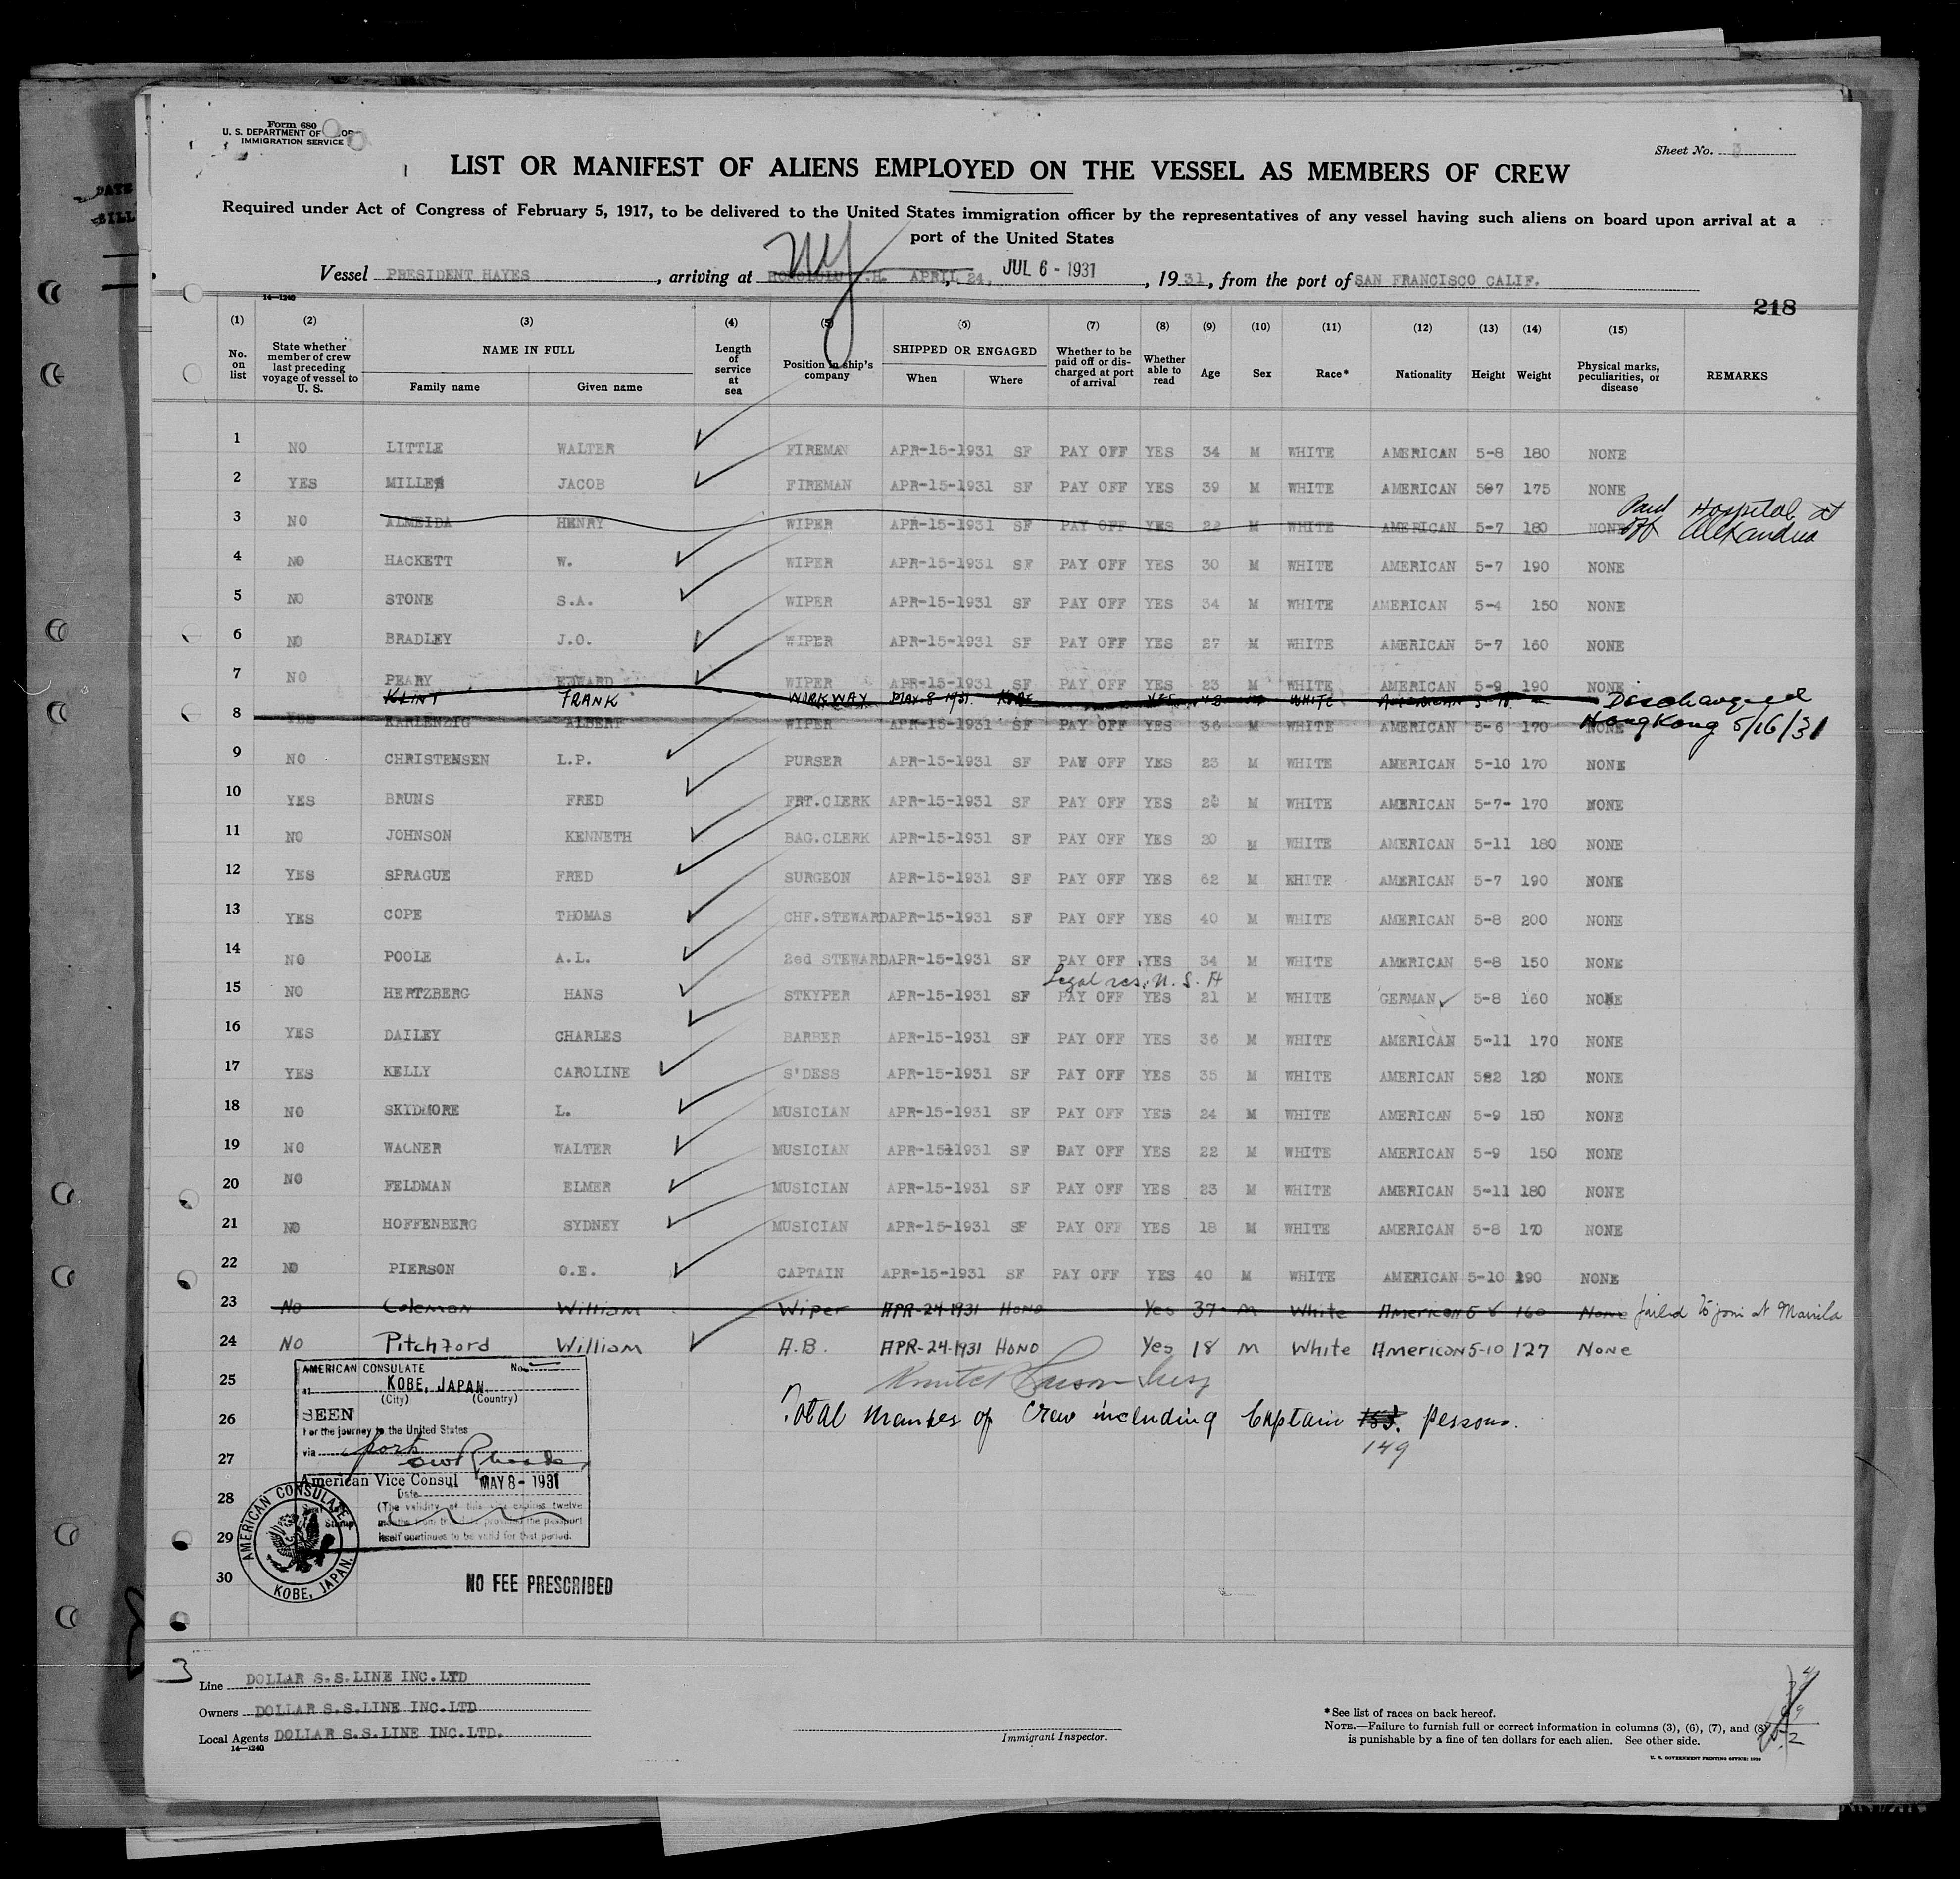 Form 680
U. S. DEPARTMENT OF
IMMIGRATION SERVICE
Sheet No. 3
LIST OR MANIFEST OF ALIENS EMPLOYED ON THE VESSEL AS MEMBERS OF CREW
Required under Act of Congress of February 5, 1917, to be delivered to the United States immigration officer by the representatives of any vessel having such aliens on board upon arrival at a
port of the United States
Vessel PRESIDENT HAYES, arriving at NY HONOLULU T.H. APRIL 24, JUL 6 - 1931, 1931, from the port of SAN FRANCISCO CALIF.
14—1240
218
(1) (2) (3) (4) (5) (6) (7) (8) (9) (10) (11) (12) (13) (14) (15)
No. on list
State whether member of crew last preceding voyage of vessel to U. S.
NAME IN FULL
Family name
Given name
Length of service at sea
Position in ship's company
SHIPPED OR ENGAGED
When
Where
Whether to be paid off or discharged at port of arrival
Whether able to read
Age
Sex
Race*
Nationality
Height
Weight
Physical marks, peculiarities, or disease
REMARKS
1 NO LITTLE WALTER FIREMAN APR-15-1931 SF PAY OFF YES 34 M WHITE AMERICAN 5-8 180 NONE
2 YES MILLER JACOB FIREMAN APR-15-1931 SF PAY OFF YES 39 M WHITE AMERICAN 5-7 175 NONE
3 NO ALMEIDA HENRY WIPER APR-15-1931 SF PAY OFF YES 22 M WHITE AMERICAN 5-7 180 NONE Paid off Hospital at Alexandria
4 NO HACKETT W. WIPER APR-15-1931 SF PAY OFF YES 30 M WHITE AMERICAN 5-7 190 NONE
5 NO STONE S.A. WIPER APR-15-1931 SF PAY OFF YES 34 M WHITE AMERICAN 5-4 150 NONE
6 NO BRADLEY J.O. WIPER APR-15-1931 SF PAY OFF YES 27 M WHITE AMERICAN 5-7 160 NONE
7 NO PEARY EDWARD WIPER APR-15-1931 SF PAY OFF YES 23 M WHITE AMERICAN 5-9 190 NONE
KLINT FRANK WORKWAY MAY-8-1931 KOBE YES WHITE AMERICAN Discharged
8 YES KARLENZIG ALBERT WIPER APR-15-1931 SF PAY OFF YES 36 M WHITE AMERICAN 5-6 170 NONE HongKong 5/16/31
9 NO CHRISTENSEN L.P. PURSER APR-15-1931 SF PAY OFF YES 23 M WHITE AMERICAN 5-10 170 NONE
10 YES BRUNS FRED FRT.CLERK APR-15-1931 SF PAY OFF YES M WHITE AMERICAN 5-7- 170 NONE
11 NO JOHNSON KENNETH BAG.CLERK APR-15-1931 SF PAY OFF YES 20 M WHITE AMERICAN 5-11 180 NONE
12 YES SPRAGUE FRED SURGEON APR-15-1931 SF PAY OFF YES 62 M EHITE AMERICAN 5-7 190 NONE
13 YES COPE THOMAS CHF.STEWARD APR-15-1931 SF PAY OFF YES 40 M WHITE AMERICAN 5-8 200 NONE
14 NO POOLE A.L. 2ed STEWARD APR-15-1931 SF PAY OFF YES 34 M WHITE AMERICAN 5-8 150 NONE
Legal res. U. S. A
15 NO HERTZBERG HANS STKYPER APR-15-1931 SF PAY OFF YES 21 M WHITE GERMAN 5-8 160 NONE
16 YES DAILEY CHARLES BARBER APR-15-1931 SF PAY OFF YES 36 M WHITE AMERICAN 5-11 170 NONE
17 YES KELLY CAROLINE S'DESS APR-15-1931 SF PAY OFF YES 35 M WHITE AMERICAN 5-2 120 NONE
18 NO SKIDMORE L. MUSICIAN APR-15-1931 SF PAY OFF YES 24 M WHITE AMERICAN 5-9 150 NONE
19 NO WAGNER WALTER MUSICIAN APR-15-1931 SF PAY OFF YES 22 M WHITE AMERICAN 5-9 150 NONE
20 NO FELDMAN ELMER MUSICIAN APR-15-1931 SF PAY OFF YES 23 M WHITE AMERICAN 5-11 180 NONE
21 NO HOFFENBERG SYDNEY MUSICIAN APR-15-1931 SF PAY OFF YES 18 M WHITE AMERICAN 5-8 170 NONE
22 NO PIERSON O.E. CAPTAIN APR-15-1931 SF PAY OFF YES 40 M WHITE AMERICAN 5-10 190 NONE
23 No Coleman William Wiper APR-24-1931 HONO Yes 37 M White American 5-8 160 None failed to join at Manila
24 NO Pitchford William A.B. APR-24-1931 HONO Yes 18 M White American 5-10 127 None
25
26 Total members of Crew including Captain 153. persons.
27 149
28
29
30
AMERICAN CONSULATE No.
at KOBE, JAPAN.
(City) (Country)
SEEN
For the journey to the United States
via
American Vice Consul MAY 8 - 1931
Date
(The validity of this visa expires twelve
months from this date provided the passport
itself continues to be valid for that period.
AMERICAN CONSULATE
KOBE, JAPAN.
NO FEE PRESCRIBED
3
Line DOLLAR S.S.LINE INC.LTD
Owners DOLLAR S.S.LINE INC.LTD
Local Agents DOLLAR S.S.LINE INC.LTD.
14—1240
Immigrant Inspector.
*See list of races on back hereof.
NOTE.—Failure to furnish full or correct information in columns (3), (6), (7), and (8)
is punishable by a fine of ten dollars for each alien. See other side.
U. S. GOVERNMENT PRINTING OFFICE: 1930